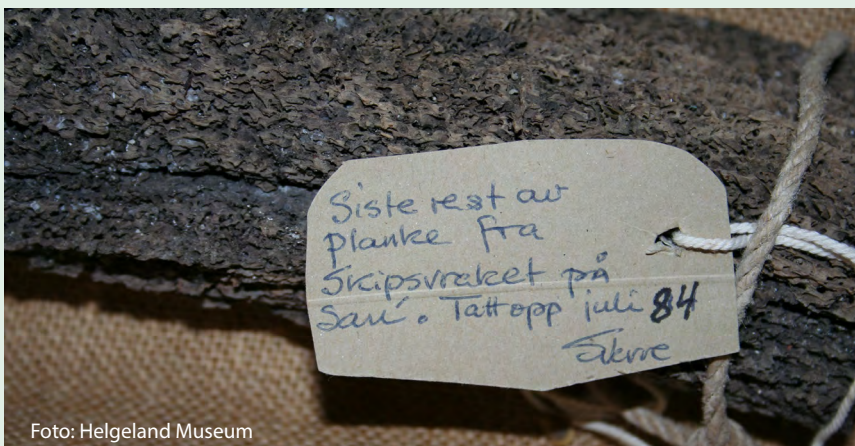 Siste rest av
planke fra
Skipsvraket på
Tatt opp juli 84
Foto: Helgeland Museum